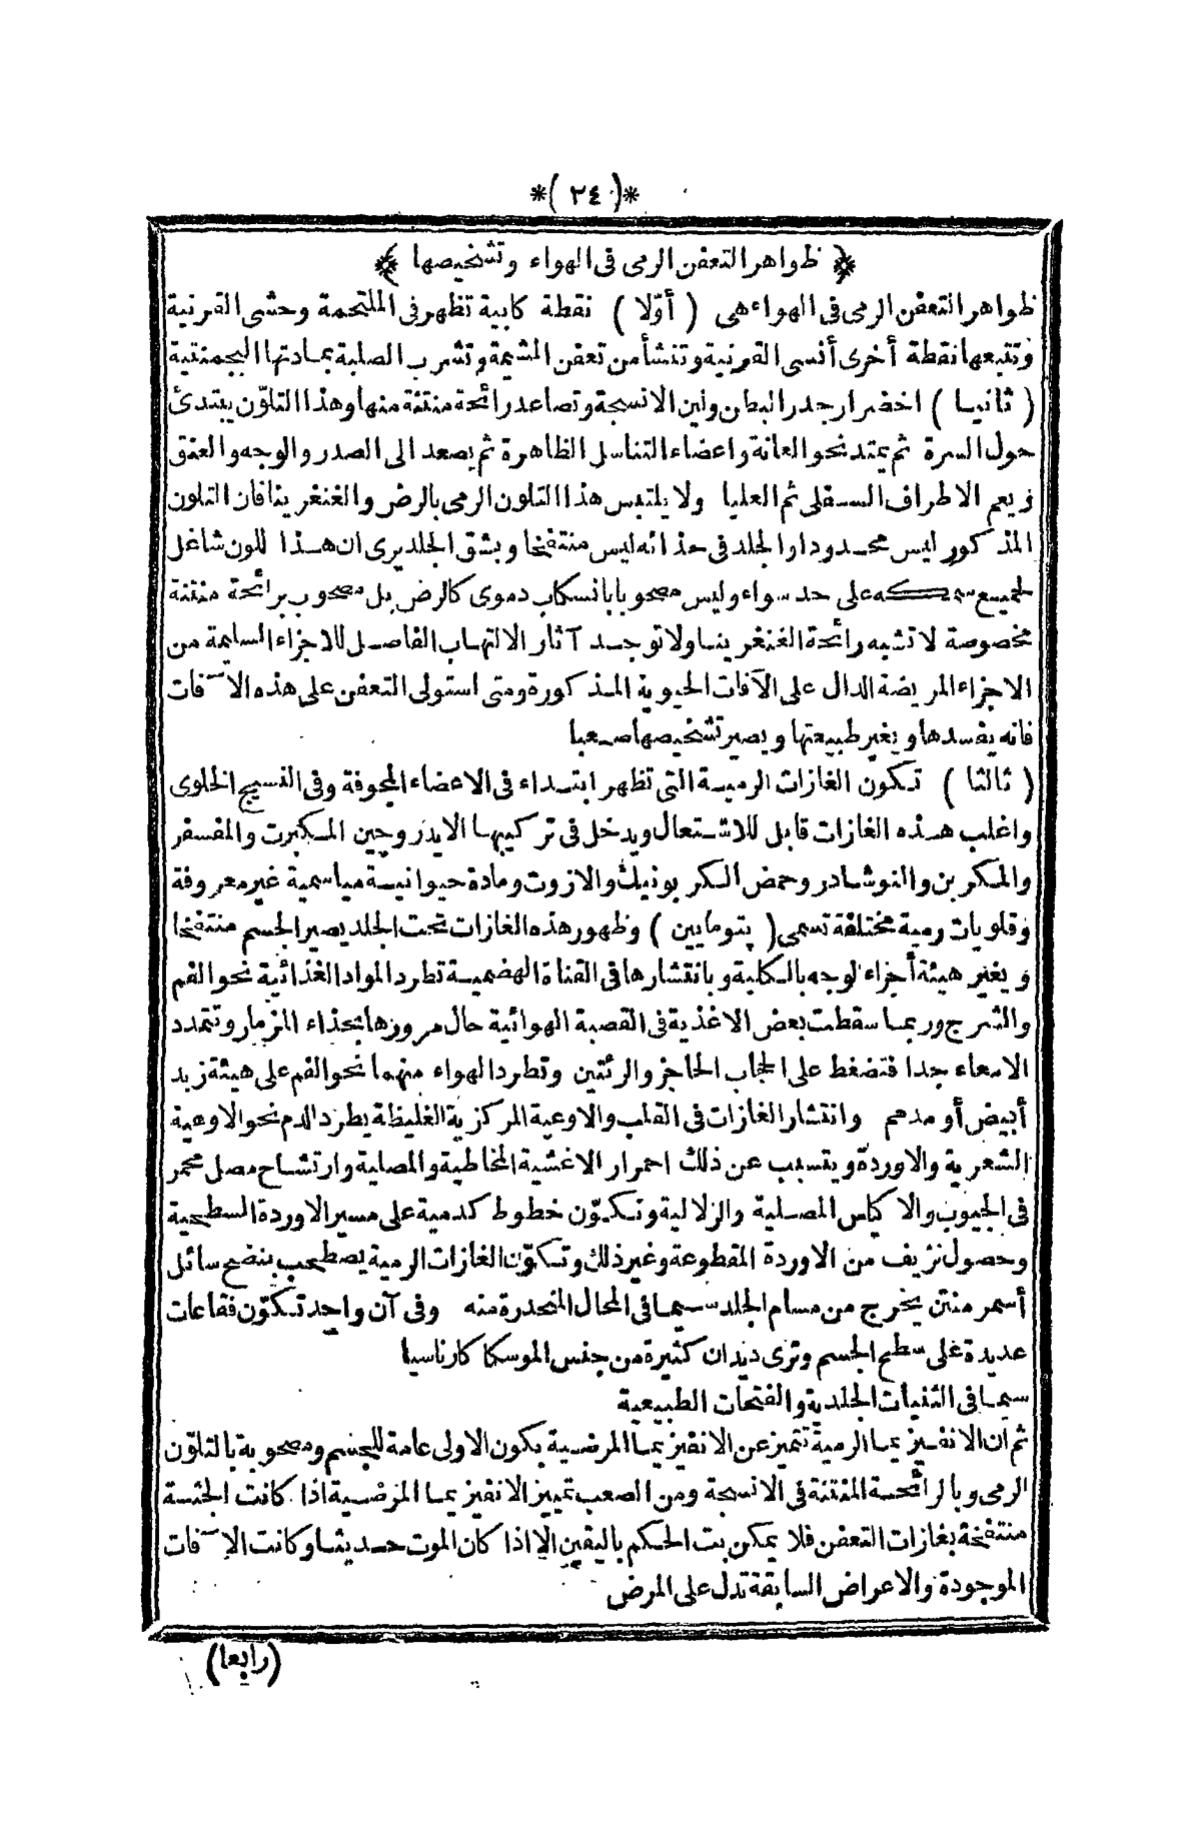 *( ٢٤ )*
﴿ ظواهر التعفن الرمى فى الهواء وتشخيصها ﴾
ظواهر التعفن الرمى فى الهواء هى ( أوّلا ) نقطة كابية تظهر فى الملتحمة وحشى القرنية
وتتبعها نقطة أخرى أنسى القرنية وتنشأ من تعفن المشيمة وتشرب الصلبة بمادتها البجمنتية
( ثانيا ) اخضرار جدر البطن ولين الانسجة وتصاعد رائحة منتنة منها وهذا التلوّن يبتدئ
حول السرة ثم يمتد نحو العانة واعضاء التناسل الظاهرة ثم يصعد الى الصدر والوجه والعنق
ويعم الاطراف السفلى ثم العليا ولا يلتبس هذا التلون الرمى بالرض والغنغرينا فان التلون
المذكور ليس محدودا والجلد فى حذائه ليس منتفخا وبشق الجلد يرى ان هذا اللون شاغل
لجميع سمكه على حد سواء وليس مصحوبا بانسكاب دموى كالرض بل مصحوب برائحة منتنة
مخصوصة لا تشبه رائحة الغنغرينا ولا توجد آثار الالتهاب الفاصل للاجزاء السليمة من
الاجزاء المريضة الدال على الآفات الحيوية المذكورة ومتى استولى التعفن على هذه الآفات
فانه يفسدها ويغير طبيعتها ويصير تشخيصها صعبا
( ثالثا ) تكون الغازات الرمية التى تظهر ابتداء فى الاعضاء المجوفة وفى النسيج الخلوى
واغلب هذه الغازات قابل للاشتعال ويدخل فى تركيبها الايدروجين المكبرت والمفسفر
والمكربن والنوشادر وحمض الكربونيك والازوت ومادة حيوانية مياسمية غير معروفة
وقلويات رمية مختلفة تسمى ( پتومايين ) وظهور هذه الغازات تحت الجلد يصير الجسم منتفخا
ويغير هيئة أجزاء الوجه بالكلية وبانتشارها فى القناة الهضمية تطرد المواد الغذائية نحو الفم
والشرج وربما سقطت بعض الاغذية فى القصبة الهوائية حال مرورها بحذاء المزمار وتتمدد
الامعاء جدا فتضغط على الحجاب الحاجز والرئتين وتطرد الهواء منهما نحو الفم على هيئة زبد
أبيض أو مدمم وانتشار الغازات فى القلب والاوعية المركزية الغليظة يطرد الدم نحو الاوعية
الشعرية والاوردة ويتسبب عن ذلك احمرار الاغشية المخاطية والمصلية وارتشاح مصل محمر
فى الجيوب والاكياس المصلية والزلالية وتكوّن خطوط كدمية على مسير الاوردة السطحية
وحصول نزيف من الاوردة المقطوعة وغير ذلك وتكوّن الغازات الرمية يصطحب بنضح سائل
أسمر منتن يخرج من مسام الجلد سيما فى المحال المنحدرة منه وفى آن واحد تتكوّن فقاعات
عديدة على سطح الجسم وترى ديدان كثيرة من جنس الموسكا كارناسيا
سيما فى الثنيات الجلدية والفتحات الطبيعية
ثم ان الانفيزيما الرمية تتميز عن الانفيزيما المرضية بكون الاولى عامة للجسم ومصحوبة بالتلوّن
الرمى وبالرائحة المنتنة فى الانسجة ومن الصعب تمييز الانفيزيما المرضية اذا كانت الجثة
منتفخة بغازات التعفن فلا يمكن بت الحكم باليقين الا اذا كان الموت حديثا وكانت الآفات
الموجودة والاعراض السابقة تدل على المرض
(رابعا)